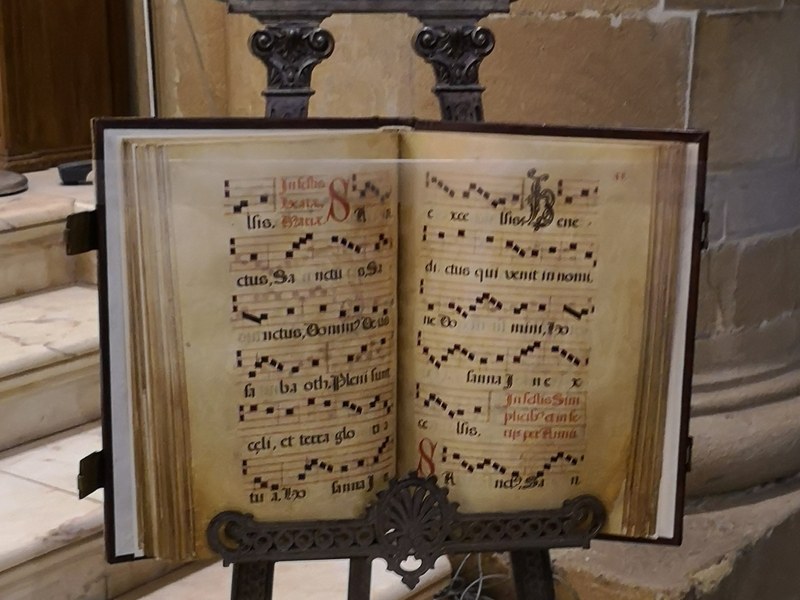 lsis. In festis
beatæ
Mariæ S A n
ctus, Sa nctu s, Sa
nctus, Dominꝰ Deus
sa ba oth, Pleni sunt
cęli, et terra glo ri a
tu a, Ho sanna J
n e xce lsis, Bene
di ctus qui venit in nomi,
ne Do mini, Ho
sanna J n e x
ce lsis. In festis Sim
plicibꝰ et in fe
rijs per Annū
S A nctꝰ, Sa n